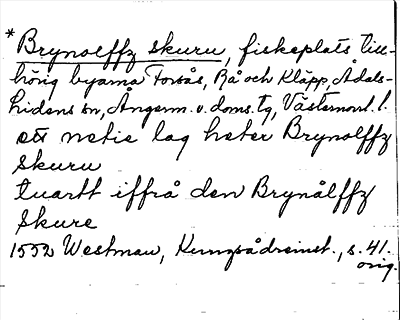 *Brynolffz skuru, fiskeplats till-
hörig byarna Forsås, Rå och Kläpp, Ådals-
lidens sn, Ångerm. v. doms. tg, Västernorrl. l.
ett notie lag heter Brynolffz
skuru
tuartt iffrå den Brynålffz
Skure
1552 Westman, Kungsådreinst., s. 41.
orig.